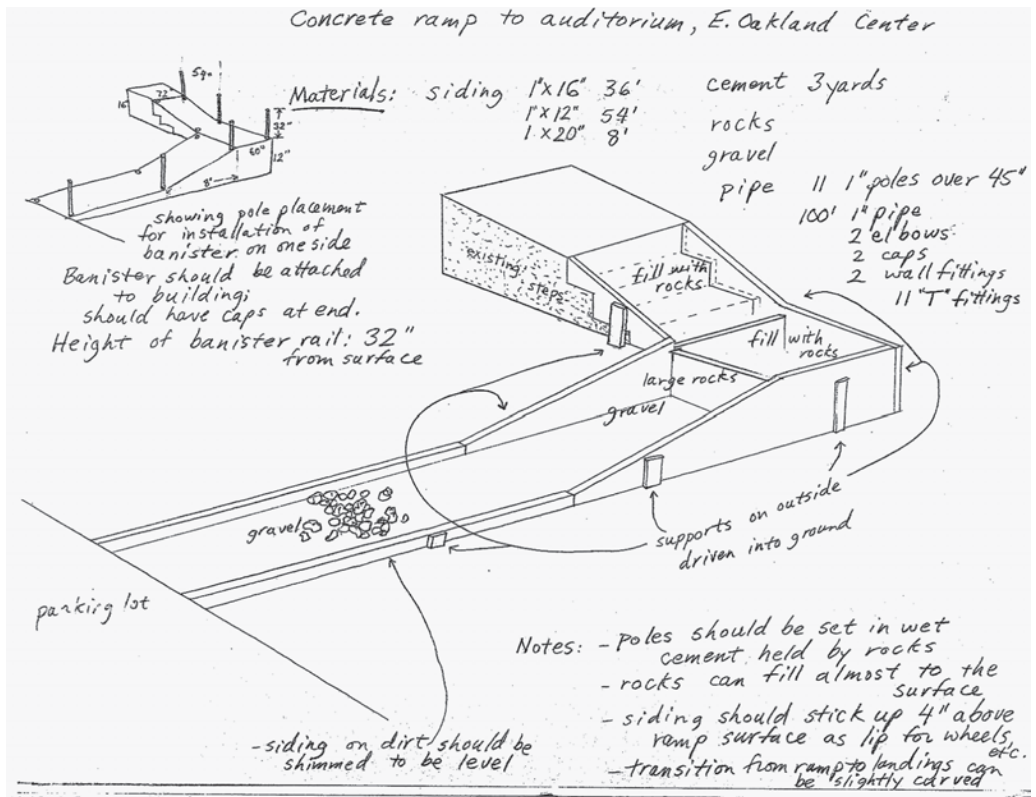 Concrete ramp to auditorium, E. Oakland Center
Materials: siding 1"x16" 36'
1"x12" 54'
1 x20" 8'
cement 3 yards
rocks
gravel
pipe 11 1" poles over 45"
100' 1" pipe
2 elbows
2 caps
2 wall fittings
11 "T" fittings
54"
72"
16"
32"
60"
12"
8'
showing pole placement
for installation of
banister on one side
Banister should be attached
to building;
should have caps at end.
Height of banister rail: 32"
from surface
existing
steps
fill with
rocks
fill with
rocks
large rocks
gravel
gravel
supports on outside
driven into ground
parking lot
-siding on dirt should be
shimmed to be level
Notes: - poles should be set in wet
cement held by rocks
- rocks can fill almost to the
surface
- siding should stick up 4" above
ramp surface as lip for wheels,
etc.
- transition from ramp to landings can
be slightly curved